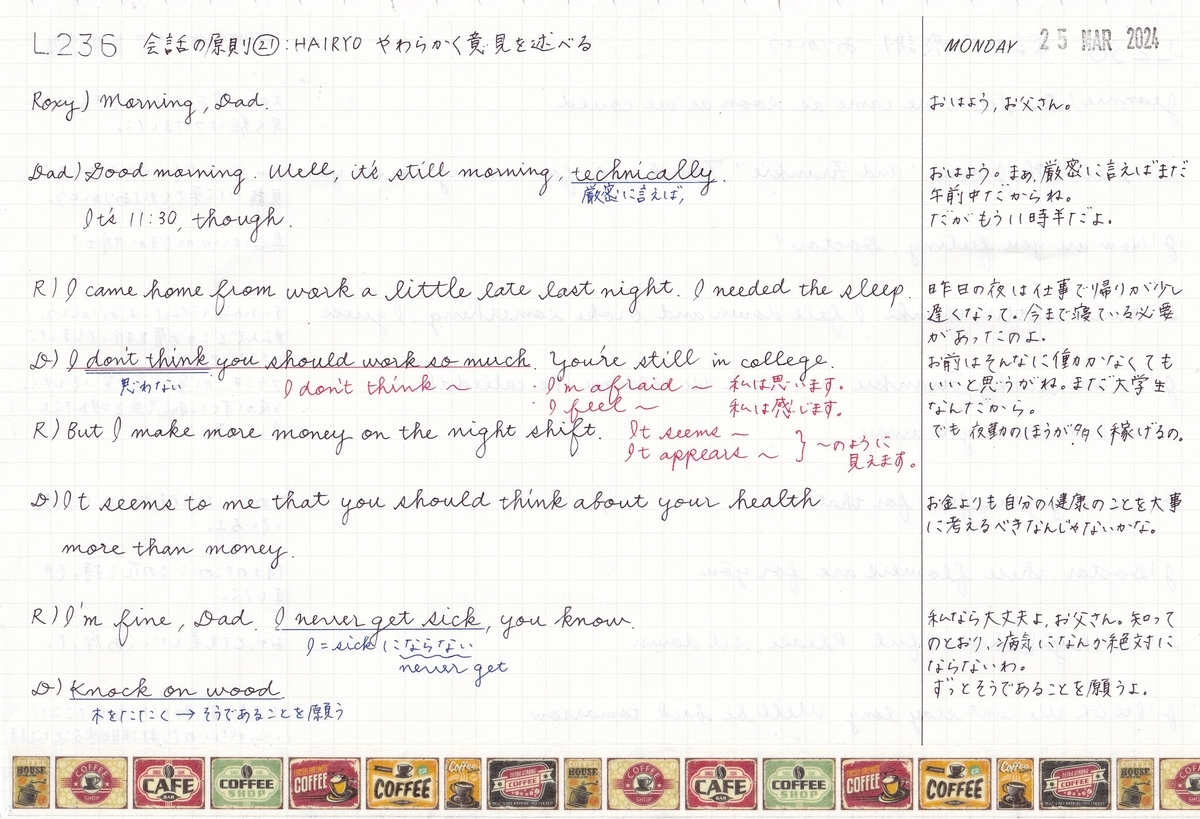 L236 会話の原則㉑: HAIRYO やわらかく意見を述べる
MONDAY 25 MAR 2024
Roxy) Morning, Dad.
おはよう, お父さん。
Dad) Good morning. Well, it's still morning, technically.
厳密に言えば,
It's 11:30, though.
おはよう。まぁ, 厳密に言えばまだ
午前中だからね。
だがもう11時半だよ。
R) I came home from work a little late last night. I needed the sleep.
昨日の夜は仕事で帰りが少し
遅くなって。今まで寝ている必要
があったのよ.
D) I don't think you should work so much. You're still in college.
思わない
I don't think ~
I'm afraid ~ 私は思います。
I feel ~ 私は感じます。
お前はそんなに働かなくても
いいと思うがね。まだ大学生
なんだから。
R) But I make more money on the night shift.
It seems ~
It appears ~
} ~のように
見えます。
でも夜勤のほうが多く稼げるの。
D) It seems to me that you should think about your health
more than money.
お金よりも自分の健康のことを大事
に考えるべきなんじゃないかな。
R) I'm fine, Dad. I never get sick, you know.
I = sick にならない
never get
私なら大丈夫よ, お父さん。知って
のとおり, 病気になんか絶対に
ならないわ。
D) Knock on wood.
木をたたく → そうであることを願う
ずっとそうであることを願うよ。
COFFEE HOUSE
COFFEE SHOP
CAFE BAR
COFFEE SHOP
COFFEE
COFFEE
Coffee
COFFEE
COFFEE HOUSE
COFFEE SHOP
CAFE BAR
COFFEE SHOP
COFFEE
COFFEE
Coffee
COFFEE
COFFEE HOUSE
COFFEE SHOP